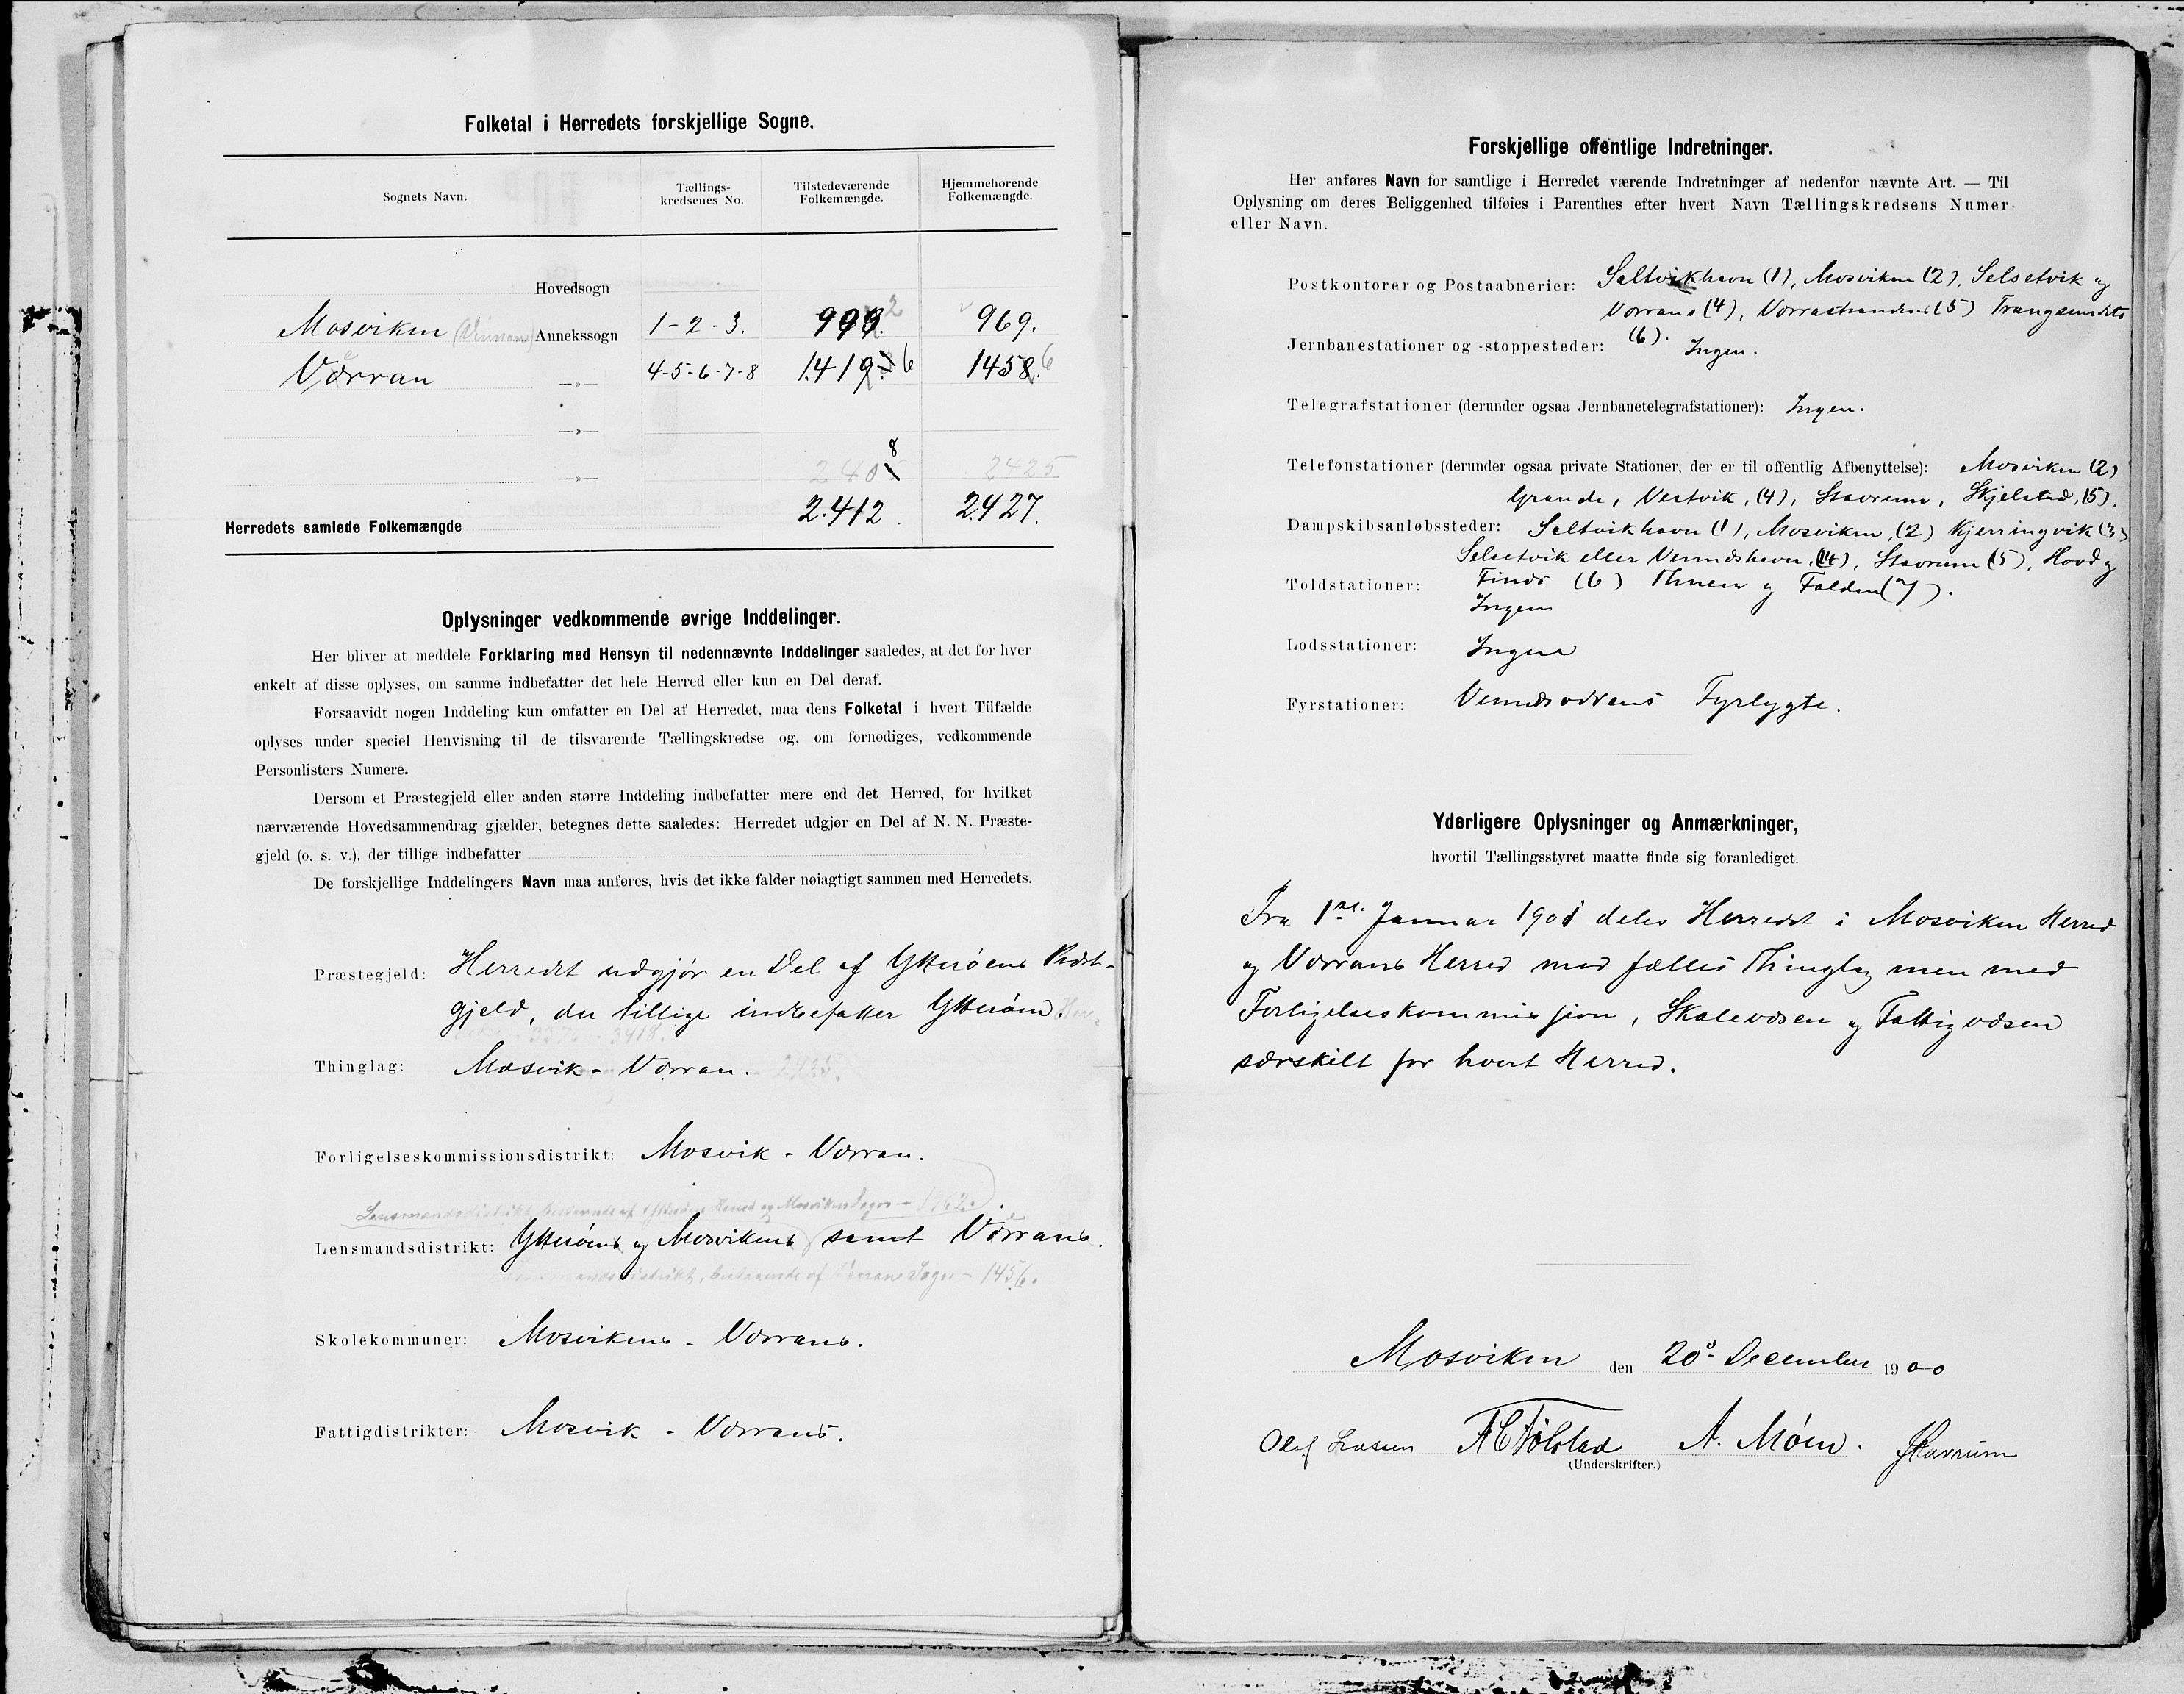 Folketal i Herredets forskjellige Sogne.
Sognets Navn.
Tællings-
kredsenes No.
Tilstedeværende
Folkemængde.
Hjemmehørende
Folkemængde.
Hovedsogn
Mosviken Annekssogn 1-2-3. 993. 2 969.
Værran —»— 4-5-6-7-8 1.419. 6 1458. 6
—»—
8
—»— 240 2425
Herredets samlede Folkemængde 2.412 2.427.
Oplysninger vedkommende øvrige Inddelinger.
Her bliver at meddele Forklaring med Hensyn til nedennævnte Inddelinger saaledes, at det for hver
enkelt af disse oplyses, om samme indbefatter det hele Herred eller kun en Del deraf.
Forsaavidt nogen Inddeling kun omfatter en Del af Herredet, maa dens Folketal i hvert Tilfælde
oplyses under speciel Henvisning til de tilsvarende Tællingskredse og, om fornødiges, vedkommende
Personlisters Numere.
Dersom et Præstegjeld eller anden større Inddeling indbefatter mere end det Herred, for hvilket
nærværende Hovedsammendrag gjælder, betegnes dette saaledes: Herredet udgjør en Del af N. N. Præste-
gjeld (o. s. v.), der tillige indbefatter
De forskjellige Inddelingers Navn maa anføres, hvis det ikke falder nøiagtigt sammen med Herredets.
Præstegjeld: Herredet udgjør en Del af Ytterøens Præst-
gjeld, der tillige indbefatter Ytterøen. Her-
3418.
Thinglag: Mosvik - Værran.
Forligelseskommissionsdistrikt: Mosvik - Værran.
Lensmandsdistrikt, bestaaende af Ytterøens Herred og Mosviken Sogn -
Lensmandsdistrikt: Ytterøens og Mosvikens samt Værrans.
Lensmandsdistrikt, bestaaende af Værran Sogn - 1456.
Skolekommuner: Mosvikens - Værrans.
Fattigdistrikter: Mosvik - Værrans.
Forskjellige offentlige Indretninger.
Her anføres Navn for samtlige i Herredet værende Indretninger af nedenfor nævnte Art. — Til
Oplysning om deres Beliggenhed tilføies i Parenthes efter hvert Navn Tællingskredsens Numer
eller Navn.
Postkontorer og Postaabnerier: Saltvikhavn (1), Mosviken (2), Selsetvik og
Værrans (4), Værrastranden (5) Trangsundets
(6).
Jernbanestationer og -stoppesteder: Ingen.
Telegrafstationer (derunder ogsaa Jernbanetelegrafstationer): Ingen.
Telefonstationer (derunder ogsaa private Stationer, der er til offentlig Afbenyttelse): Mosviken (2)
Grande, Vestvik, (4), Stavrum, Skjelstad, (5).
Dampskibsanløbssteder: Saltvikhavn (1), Mosviken, (2) Kjerringvik (3)
Selsetvik eller Vennæshavn, (4), Stavrum (5), Hovd og
Finds (6) Thuen og Folden (7).
Toldstationer: Ingen
Lodsstationer: Ingen
Fyrstationer: Vennæsodens Fyrlygte.
Yderligere Oplysninger og Anmærkninger,
hvortil Tællingsstyret maatte finde sig foranlediget.
Fra 1ne. Januar 1901 deles Herredet i Mosviken Herred
og Værrans Herred med fælles Thinglag men med
Forligelseskommission, Skolevæsen og Fattigvæsen
særskilt for hvert Herred.
Mosviken den 20de December 1900
Olaf A. Møen. Stavrum
(Underskrifter.)